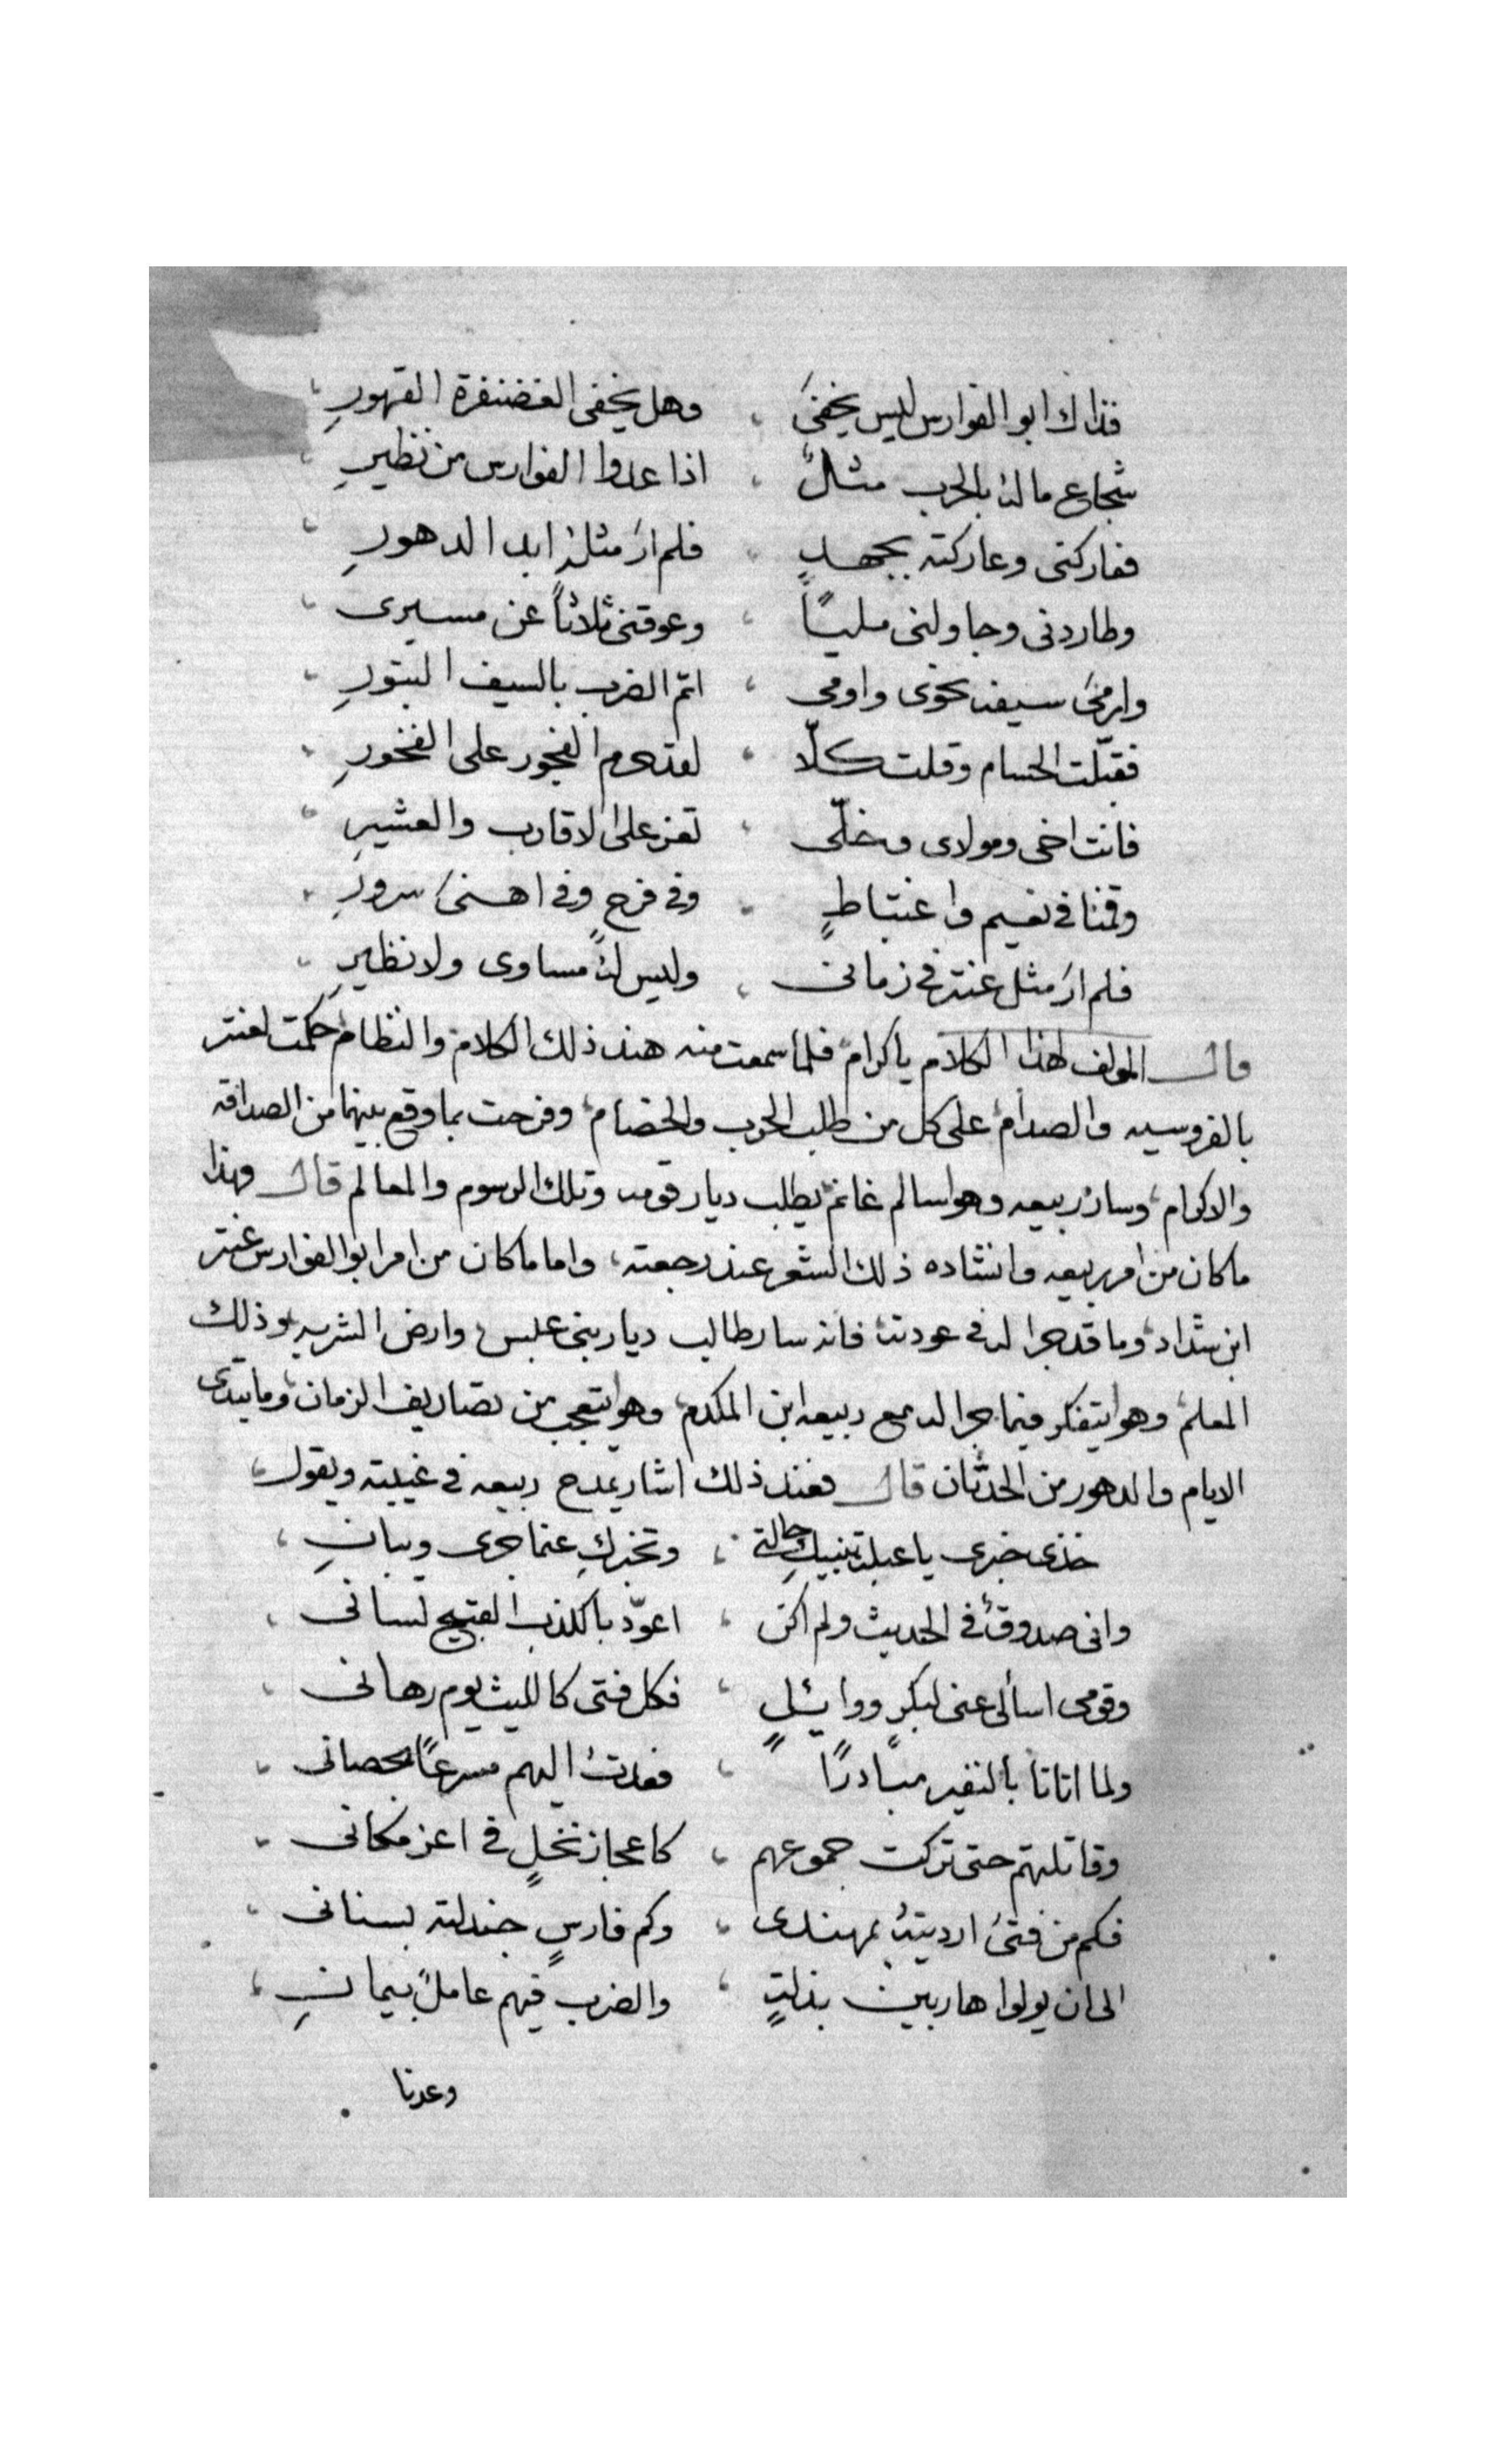 فذاك ابو الفوارس ليس يخفىَ ، وهل يخفى الغضنفرة القهورِ ،
شجاع ما لهُ بالحرب مثلٌ ، اذا عدوا الفوارس من نظيرِ ،
فعاركنى وعاركته بجهدٍ ، فلم ارَ مثلهُ ابد الدهورِ ،
وطاردنى وجاولنى مليًّا ، وعوقنى ثلاثاً عن مسيرى ،
وارمىَ سيفه نحوى واومى ، اتمّ الضرب بالسيف البتورِ ،
فقبّلت الحسام وقلت كلّا ، لقد حرم الفجور على الفخورِ ،
فانت اخى ومولاى وخلّى ، تعز على الاقارب والعشيرِ ،
وقمنا فى نعيم واغتباطٍ ، وفى فرحٍ وفى اهنىَ سرورِ ،
فلم ارَ مثل عنتر فى زمانى ، وليس لهُ مساوى ولا نظيرِ ،
قال المولف لهذا الكلام يا كرام، فلما سمعت منه هند ذلك الكلام، والنظام، حكمت لعنتر
بالفروسيه والصدام، على كل من طلب الحرب والخصام، وفرحت بما وقع بينهما من الصداقه
والاكرام، وسار ربيعه وهو سالم غانم، يطلب ديار قومه وتلك الرسوم والمعالم قال وهذا
ما كان من امر ربيعه وانشاده ذلك الشعر عند رجعته، واما ما كان من امر ابو الفوارس عنتر
ابن شداد، وما قد جرا له فى عودته، فانه سار طالب ديار بنى عبس، وارض الشربه، وذلك
المعلم، وهو يتفكر فيما جرا له مع ربيعه ابن المكدم، وهو يتعجب من تصاريف الزمان، وما تبتدى
الايام والدهور من الحدثان قال فعند ذلك اشار يمدح ربيعه فى غيبته ويقول،
خذى خبرى يا عبلة تنبيكِ حالتى ، وتخبركِ عنما جرى وبيانِ ،
وانى صدوقٌ فى الحديث ولم اكن ، اعوّد بالكذب القبيح لسانى ،
وقومى اسألى عنى لبكرٍ ووايئلٍ ، فكل فتى كالليث يوم رهانى ،
ولما اتانا بالنفير مبادرًا ، فعدتُ اليهم مسرعًا بحصانى ،
وقاتلتهم حتى تركت جموعهم ، كاعجاز نخلٍ فى اعز مكانى ،
فكم من فتىً ارديتهُ بمهندى ، وكم فارسٍ جندلته بسنانى ،
الى ان يولوا هاربين بذلةٍ ، والضرب فيهم عاملٌ بيمانِ ،
وعدنا